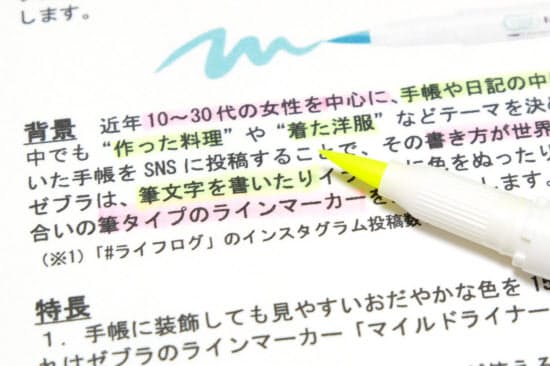 します。
背景 近年10～30代の女性を中心に、手帳や日記の中
中でも“作った料理”や“着た洋服”などテーマを決
いた手帳をSNSに投稿することで、その書き方が世界
ゼブラは、筆文字を書いたりイ に色をぬったり
合いの筆タイプのラインマーカーを します。
（※1）「#ライフログ」のインスタグラム投稿数
特長
1．手帳に装飾しても見やすいおだやかな色を15
れはゼブラのラインマーカー「マイルドライナー